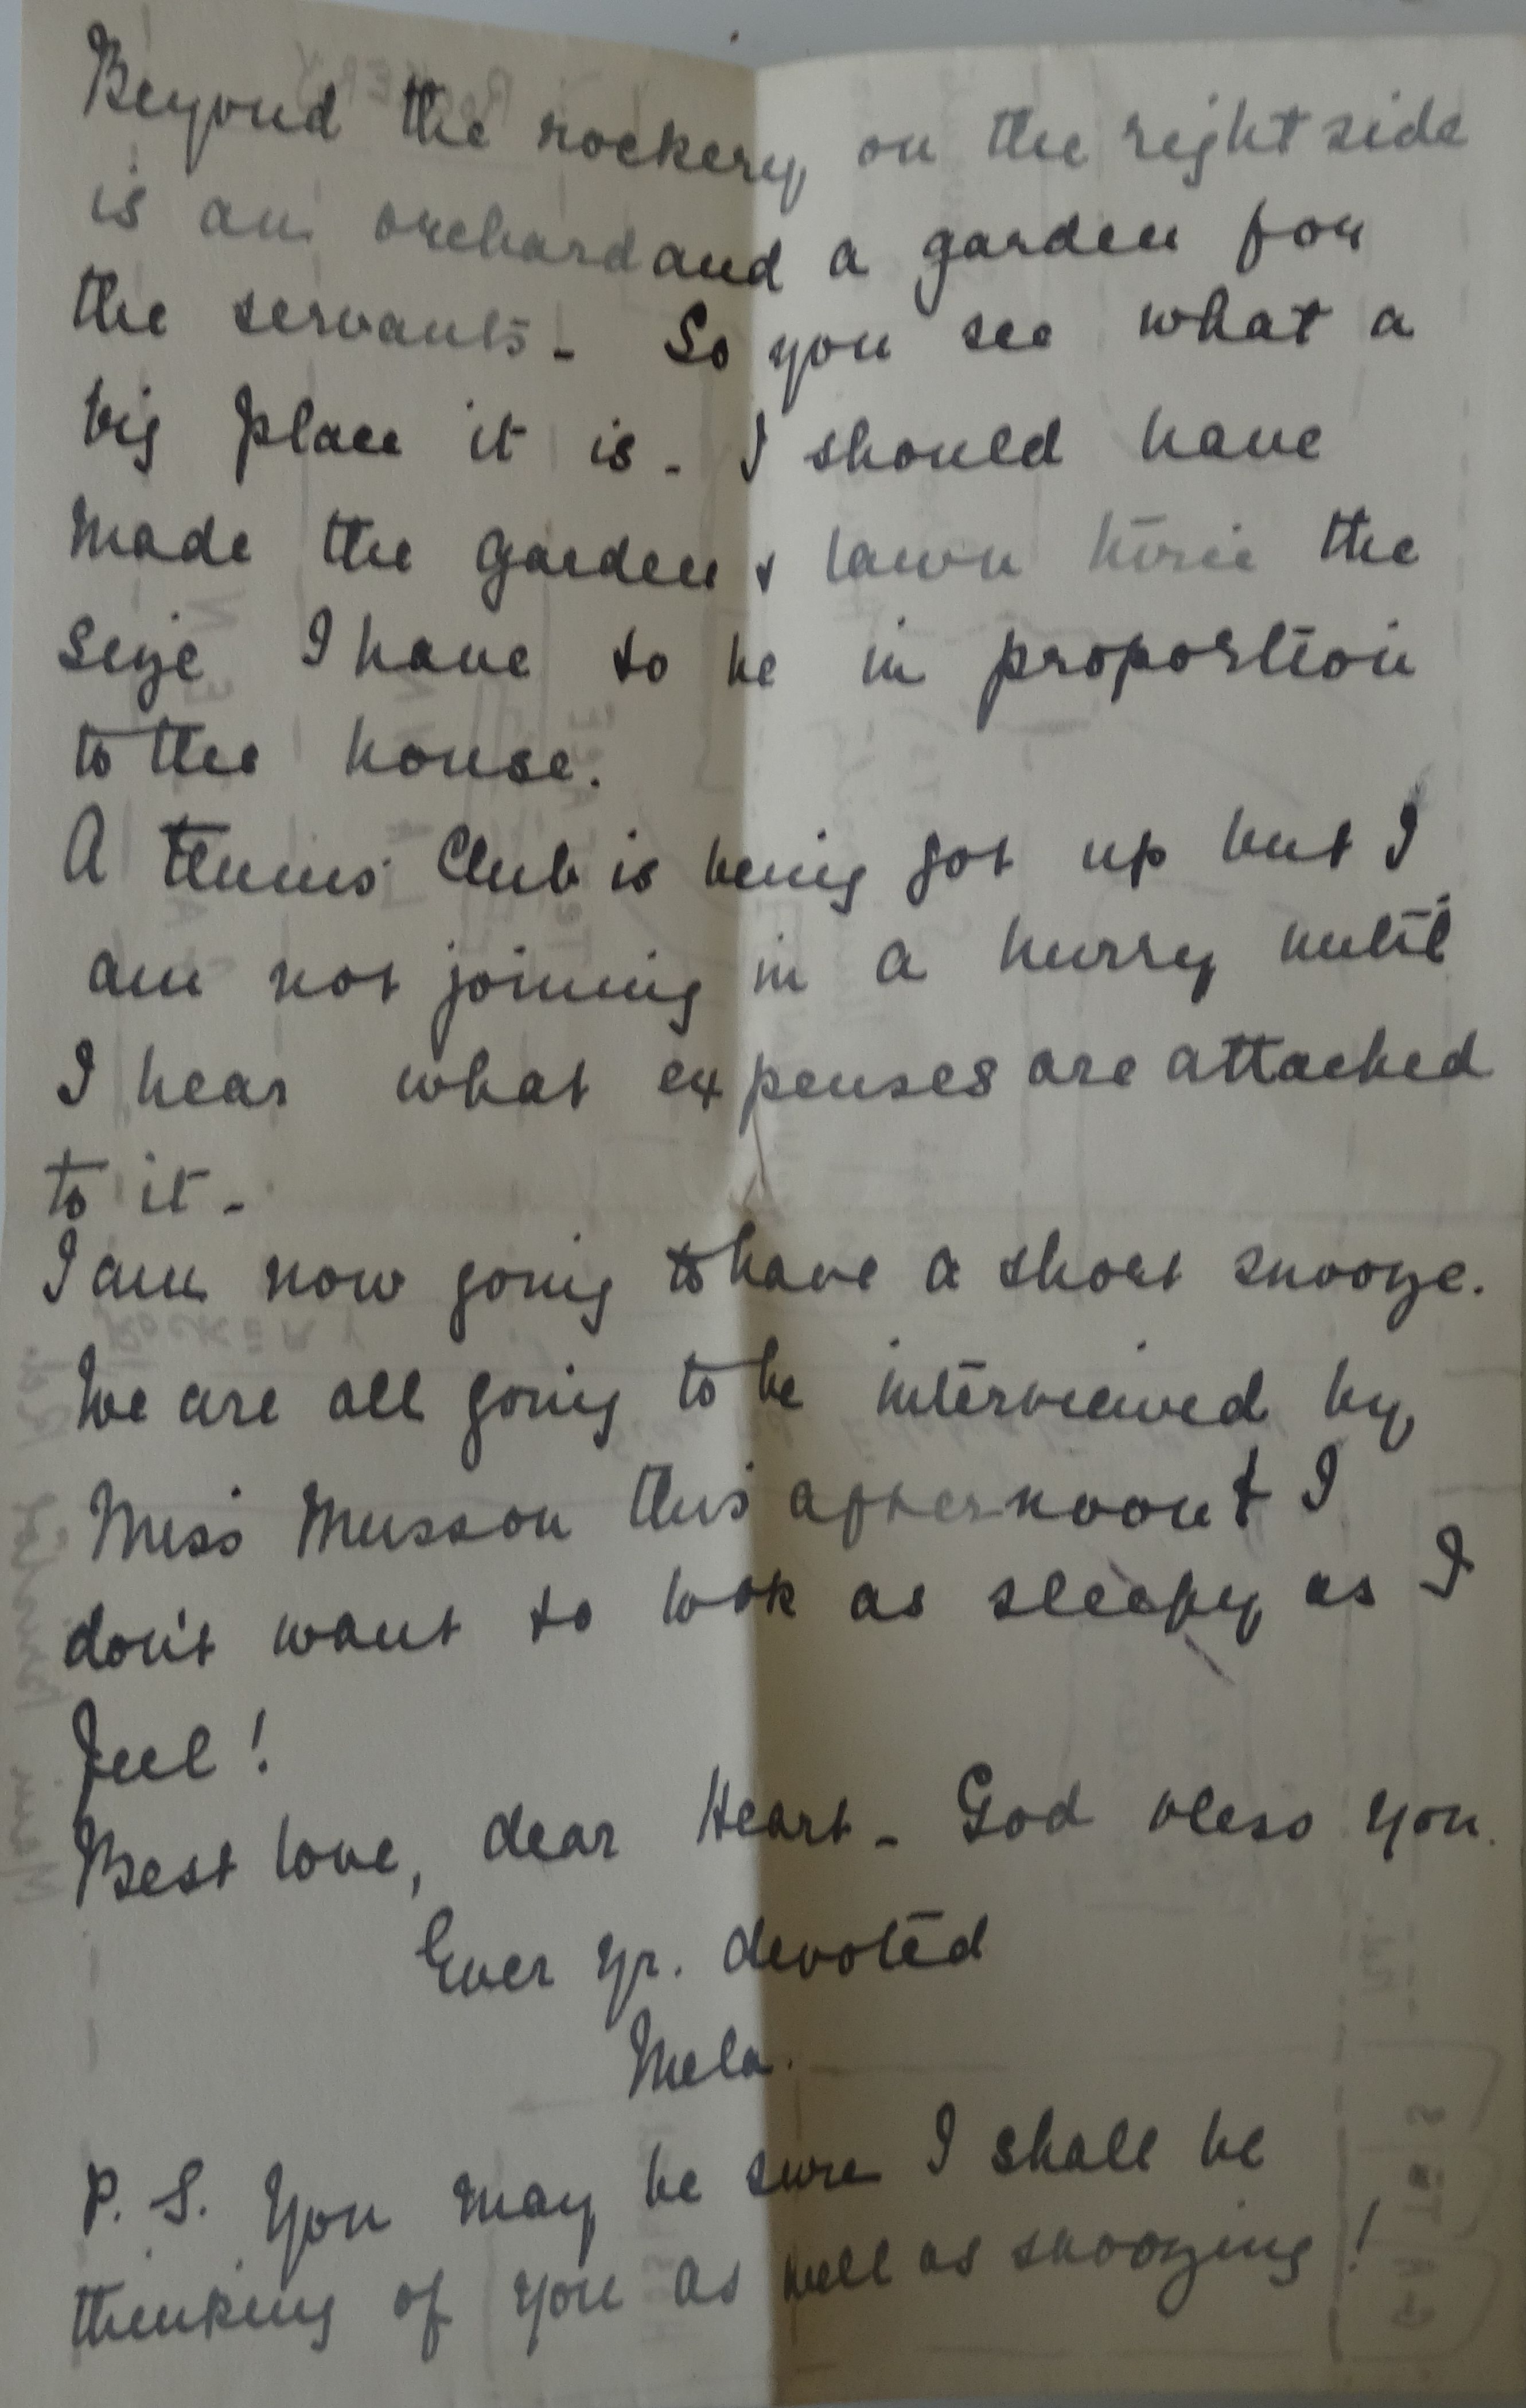 Beyond the rockery on the right side
is an orchard and a garden for
the servants - So you see what a
big place it is - I should have
made the garden & lawn twice the
seize I have to be in proportion
to the house.
A tennis Club is being got up but I
am not joining in a hurry until
I hear what expenses are attached
to it -
I am now going to have a short snooze.
We are all going to be interviewed by
Miss Musson this afternoon & I
don't want to look as sleepy as I
feel!
Best love, dear Heart - God bless you.
Ever yr. devoted
Mela.
P. S. You may be sure I shall be
thinking of you as well as snoozing!